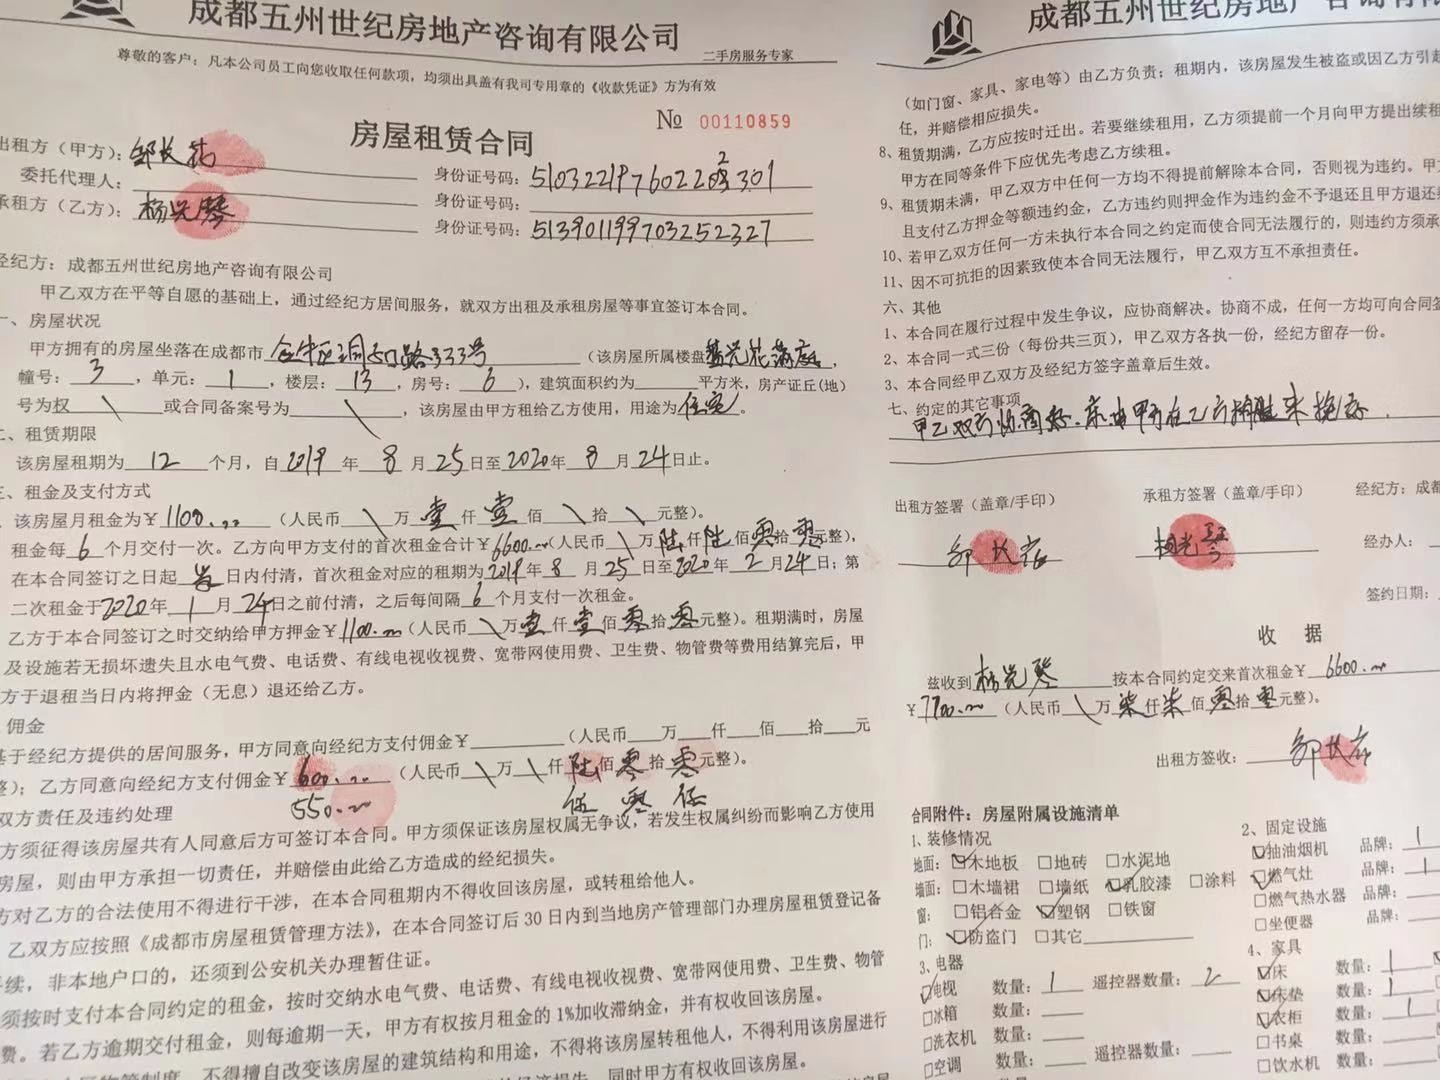 成都五州世纪房地产咨询有限公司
二手房服务专家
尊敬的客户：凡本公司员工向您收取任何款项，均须出具盖有我司专用章的《收款凭证》方为有效
№ 00110859
房屋租赁合同
出租方（甲方）：邹长
身份证号码：
委托代理人：
身份证号码：
承租方（乙方）：杨光琴
身份证号码：513901199703252327
经纪方：成都五州世纪房地产咨询有限公司
甲乙双方在平等自愿的基础上，通过经纪方居间服务，就双方出租及承租房屋等事宜签订本合同。
一、房屋状况
甲方拥有的房屋坐落在成都市 金牛区洞子口路333号（该房屋所属楼盘
幢号：3，单元：1，楼层：13，房号：6），建筑面积约为 平方米，房产证丘(地)
号为权 \ 或合同备案号为 \ ，该房屋由甲方租给乙方使用，用途为住宅。
二、租赁期限
该房屋租期为 12 个月，自2019年8月25日至2020年8月24日止。
三、租金及支付方式
该房屋月租金为￥1100.00（人民币\万壹仟壹佰\拾\元整）。
租金每6个月交付一次。乙方向甲方支付的首次租金合计￥6600.00（人民币\万陆仟陆佰零拾零元整），
在本合同签订之日起 日内付清，首次租金对应的租期为2019年8月25日至2020年2月24日；第
二次租金于2020年1月24日之前付清，之后每间隔6个月支付一次租金。
乙方于本合同签订之时交纳给甲方押金￥1100.00（人民币\万壹仟壹佰零拾零元整）。租期满时，房屋
及设施若无损坏遗失且水电气费、电话费、有线电视收视费、宽带网使用费、卫生费、物管费等费用结算完后，甲
方于退租当日内将押金（无息）退还给乙方。
佣金
基于经纪方提供的居间服务，甲方同意向经纪方支付佣金￥ （人民币 万 仟 佰 拾 元
整）；乙方同意向经纪方支付佣金￥600.00（人民币\万\仟陆佰零拾零元整）。
550.00 伍 零
双方责任及违约处理
方须征得该房屋共有人同意后方可签订本合同。甲方须保证该房屋权属无争议，若发生权属纠纷而影响乙方使用
房屋，则由甲方承担一切责任，并赔偿由此给乙方造成的经纪损失。
方对乙方的合法使用不得进行干涉，在本合同租期内不得收回该房屋，或转租给他人。
乙双方应按照《成都市房屋租赁管理方法》，在本合同签订后30日内到当地房产管理部门办理房屋租赁登记备
手续，非本地户口的，还须到公安机关办理暂住证。
须按时支付本合同约定的租金，按时交纳水电气费、电话费、有线电视收视费、宽带网使用费、卫生费、物管
费。若乙方逾期交付租金，则每逾期一天，甲方有权按月租金的1%加收滞纳金，并有权收回该房屋。
不得擅自改变该房屋的建筑结构和用途，不得将该房屋转租他人，不得利用该房屋进行
同时甲方有权收回该房屋。
成都五州世纪房地产咨询有限
（如门窗、家具、家电等）由乙方负责；租期内，该房屋发生被盗或因乙方引起
任，并赔偿相应损失。
8、租赁期满，乙方应按时迁出。若要继续租用，乙方须提前一个月向甲方提出续租
甲方在同等条件下应优先考虑乙方续租。
9、租赁期未满，甲乙双方中任何一方均不得提前解除本合同，否则视为违约。甲方
且支付乙方押金等额违约金，乙方违约则押金作为违约金不予退还且甲方退还
10、若甲乙双方任何一方未执行本合同之约定而使合同无法履行的，则违约方须承
11、因不可抗拒的因素致使本合同无法履行，甲乙双方互不承担责任。
六、其他
1、本合同在履行过程中发生争议，应协商解决。协商不成，任何一方均可向合同签
2、本合同一式三份（每份共三页），甲乙双方各执一份，经纪方留存一份。
3、本合同经甲乙双方及经纪方签字盖章后生效。
七、约定的其它事项
甲乙双方协商好，床由甲方在乙方
出租方签署（盖章/手印）
承租方签署（盖章/手印）
经纪方：成都
邹长
杨光琴
经办人：
签约日期：
收 据
兹收到杨光琴按本合同约定交来首次租金￥6600.00
￥7700.00（人民币\万柒仟柒佰零拾零元整）。
出租方签收：邹长
合同附件：房屋附属设施清单
1、装修情况
地面：☑木地板 □地砖 □水泥地
墙面：□木墙裙 □墙纸 ☑乳胶漆 □涂料
窗：□铝合金 ☑塑钢 □铁窗
门：☑防盗门 □其它
3、电器
☑电视 数量：1 遥控器数量：2
□冰箱 数量：
□洗衣机 数量：
□空调 数量： 遥控器数量：
2、固定设施
☑抽油烟机 品牌：1
☑燃气灶 品牌：1
□燃气热水器 品牌：
□坐便器 品牌：
4、家具
☑床 数量：1
☑床垫 数量：1
☑衣柜 数量：1
□书桌 数量：
□饮水机 数量：